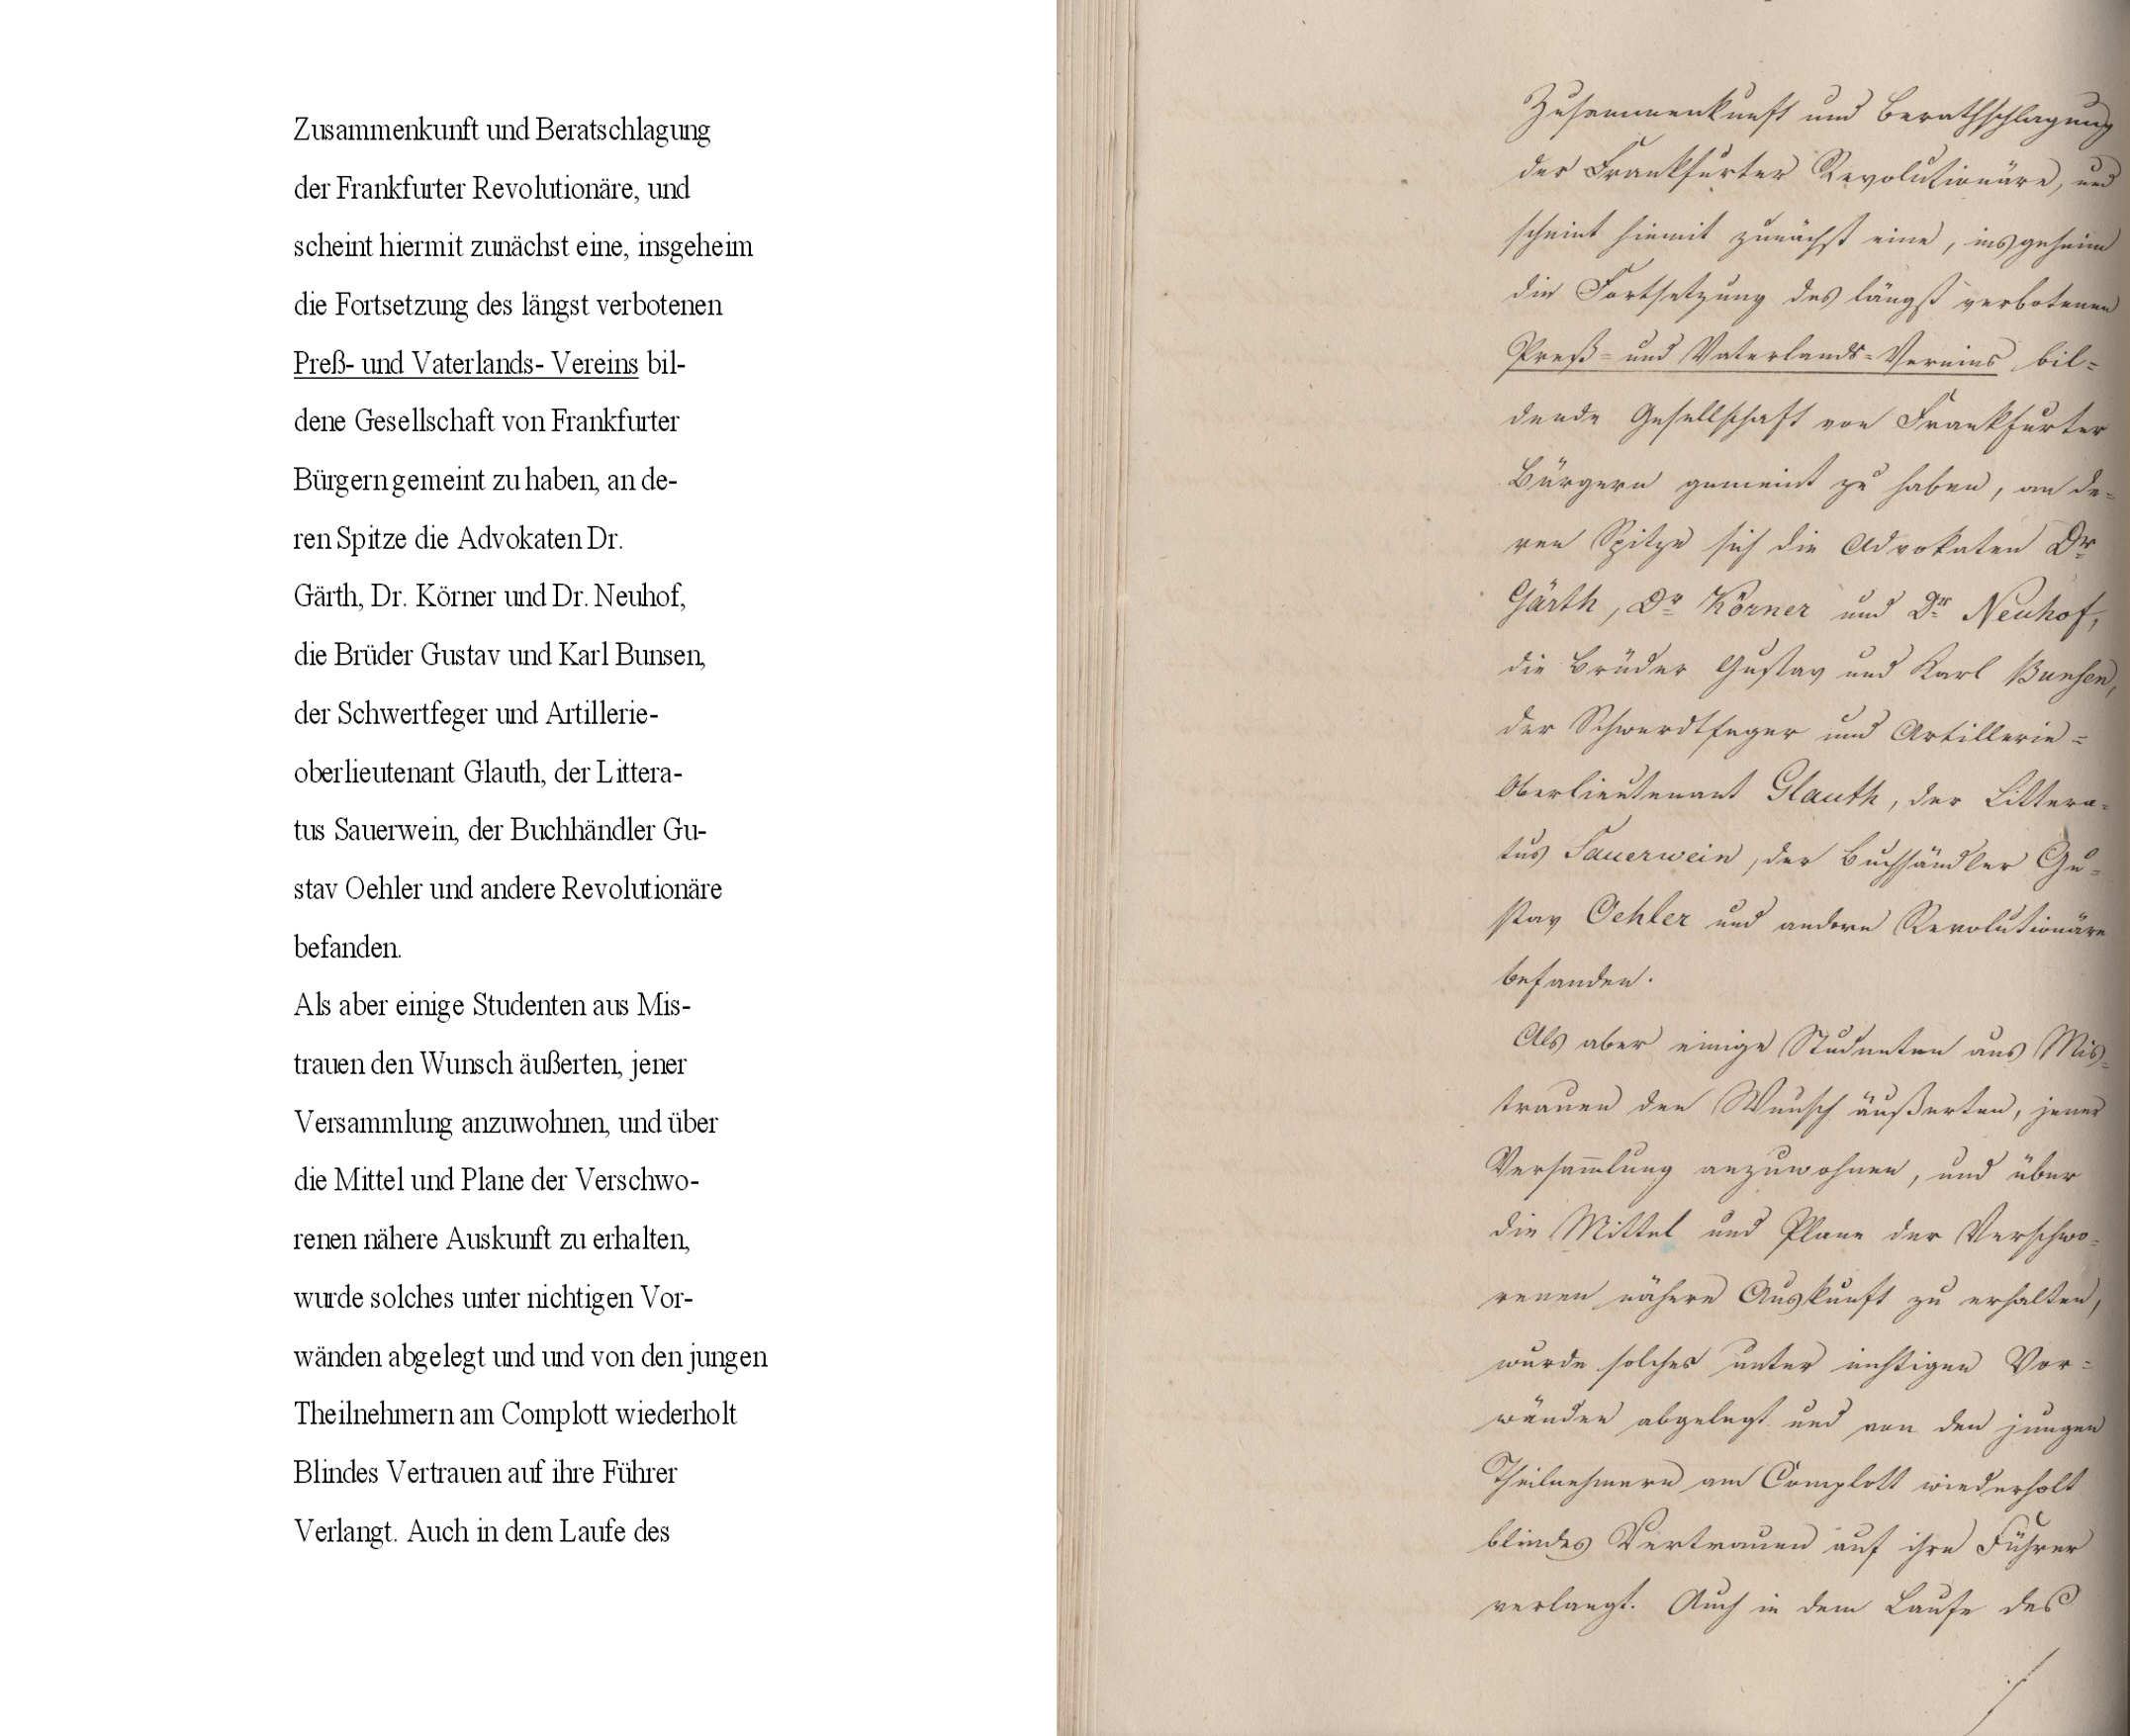 Zusammenkunft und Beratschlagung
der Frankfurter Revolutionäre, und
scheint hiermit zunächst eine, insgeheim
die Fortsetzung des längst verbotenen
Preß- und Vaterlands- Vereins bil-
dene Gesellschaft von Frankfurter
Bürgern gemeint zu haben, an de-
ren Spitze die Advokaten Dr.
Gärth, Dr. Körner und Dr. Neuhof,
die Brüder Gustav und Karl Bunsen,
der Schwertfeger und Artillerie-
oberlieutenant Glauth, der Littera-
tus Sauerwein, der Buchhändler Gu-
stav Oehler und andere Revolutionäre
befanden.
Als aber einige Studenten aus Mis-
trauen den Wunsch äußerten, jener
Versammlung anzuwohnen, und über
die Mittel und Plane der Verschwo-
renen nähere Auskunft zu erhalten,
wurde solches unter nichtigen Vor-
wänden abgelegt und und von den jungen
Theilnehmern am Complott wiederholt
Blindes Vertrauen auf ihre Führer
Verlangt. Auch in dem Laufe des
Zusammenkunft und Berathschlagung
der Frankfurter Revolutionäre, und
scheint hiemit zunächst eine, insgeheim
die Fortsetzung des längst verbotenen
Preß= und Vaterlands=Vereins bil=
dende Gesellschaft von Frankfurter
Bürgern gemeint zu haben, an de=
ren Spitze sich die Advokaten Dr
Gärth, Dr Körner und Dr Neuhof,
die Brüder Gustav und Karl Bunsen,
der Schwerdtfeger und Artillerie=
Oberlieutenant Glauth, der Littera=
tus Sauerwein, der Buchhändler Gu=
stav Oehler und andere Revolutionäre
befanden.
Als aber einige Studenten aus Mis=
trauen den Wunsch äußerten, jener
Versam̅lung anzuwohnen, und über
die Mittel und Plane der Verschwo=
renen nähere Auskunft zu erhalten,
wurde solches unter nichtigen Vor=
wänden abgelegt und von den jungen
Theilnehmern am Complott wiederholt
blindes Vertrauen auf ihre Führer
verlangt. Auch in dem Laufe des